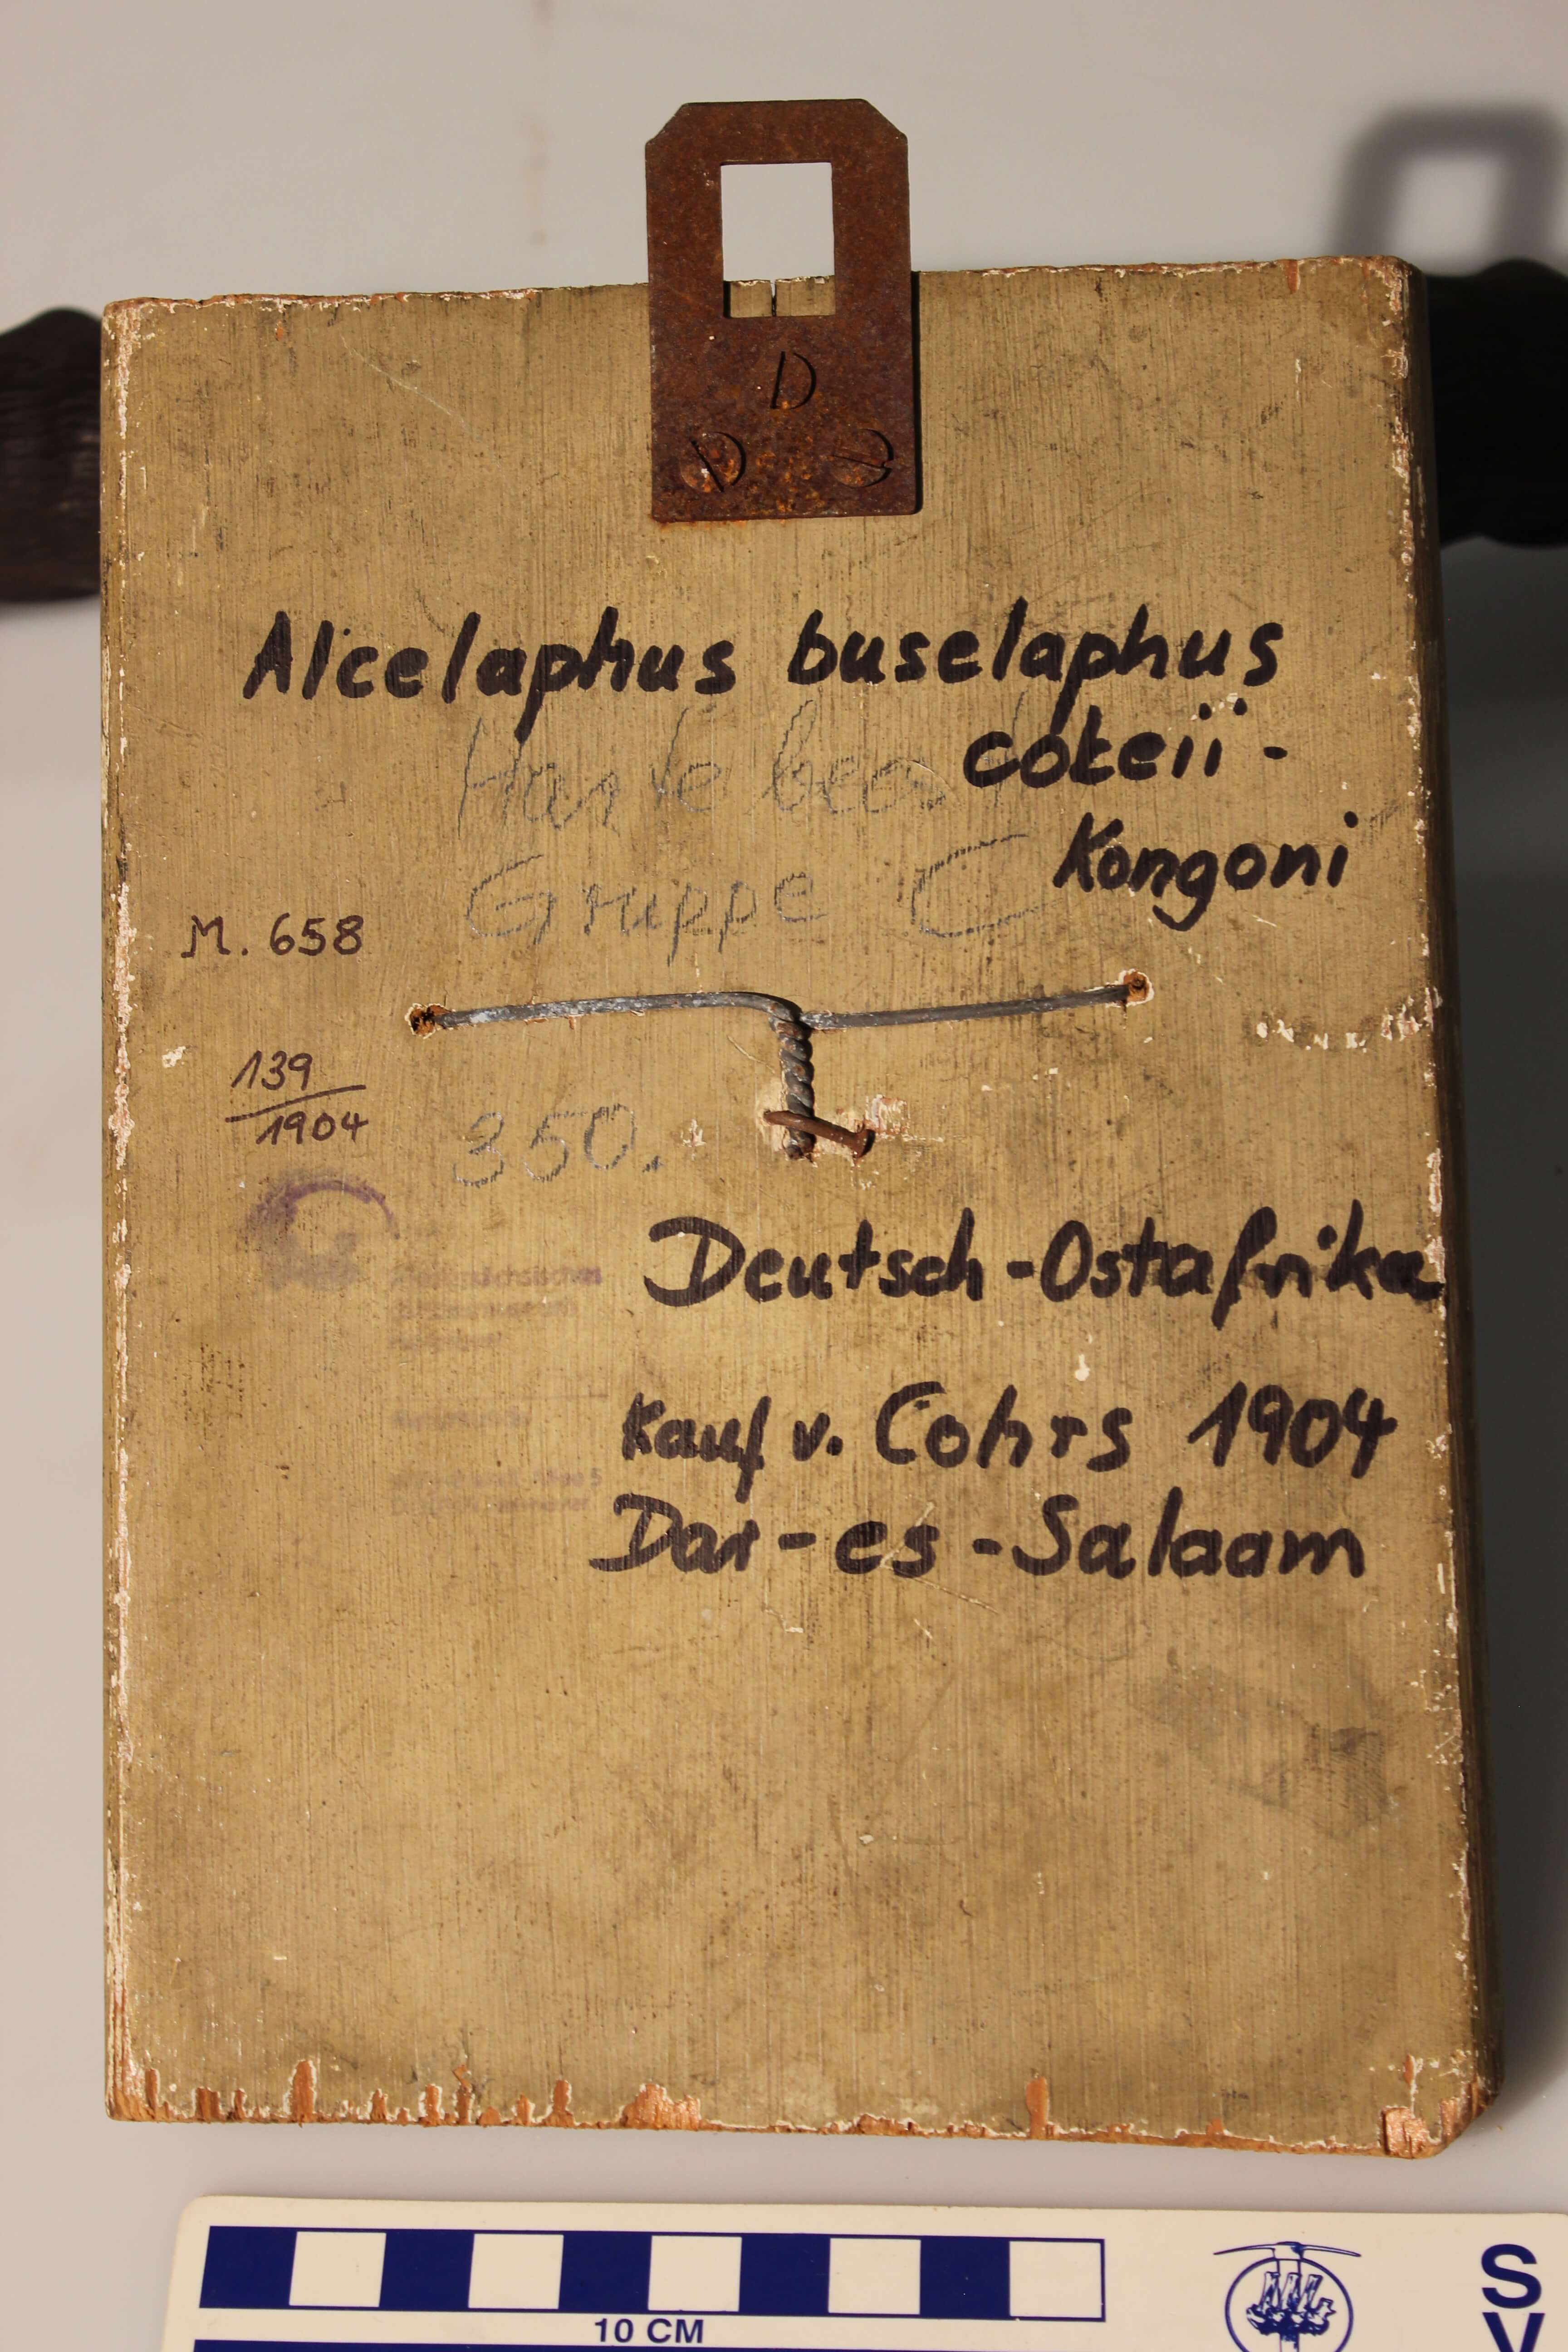 Alcelaphus buselaphus
cokeii -
Kongoni
Hartebeest
Gruppe C
M. 658
139
1904
350.
Deutsch-Ostafrika
Kauf v. Cohrs 1904
Dar-es-Salaam
10 CM
S
V